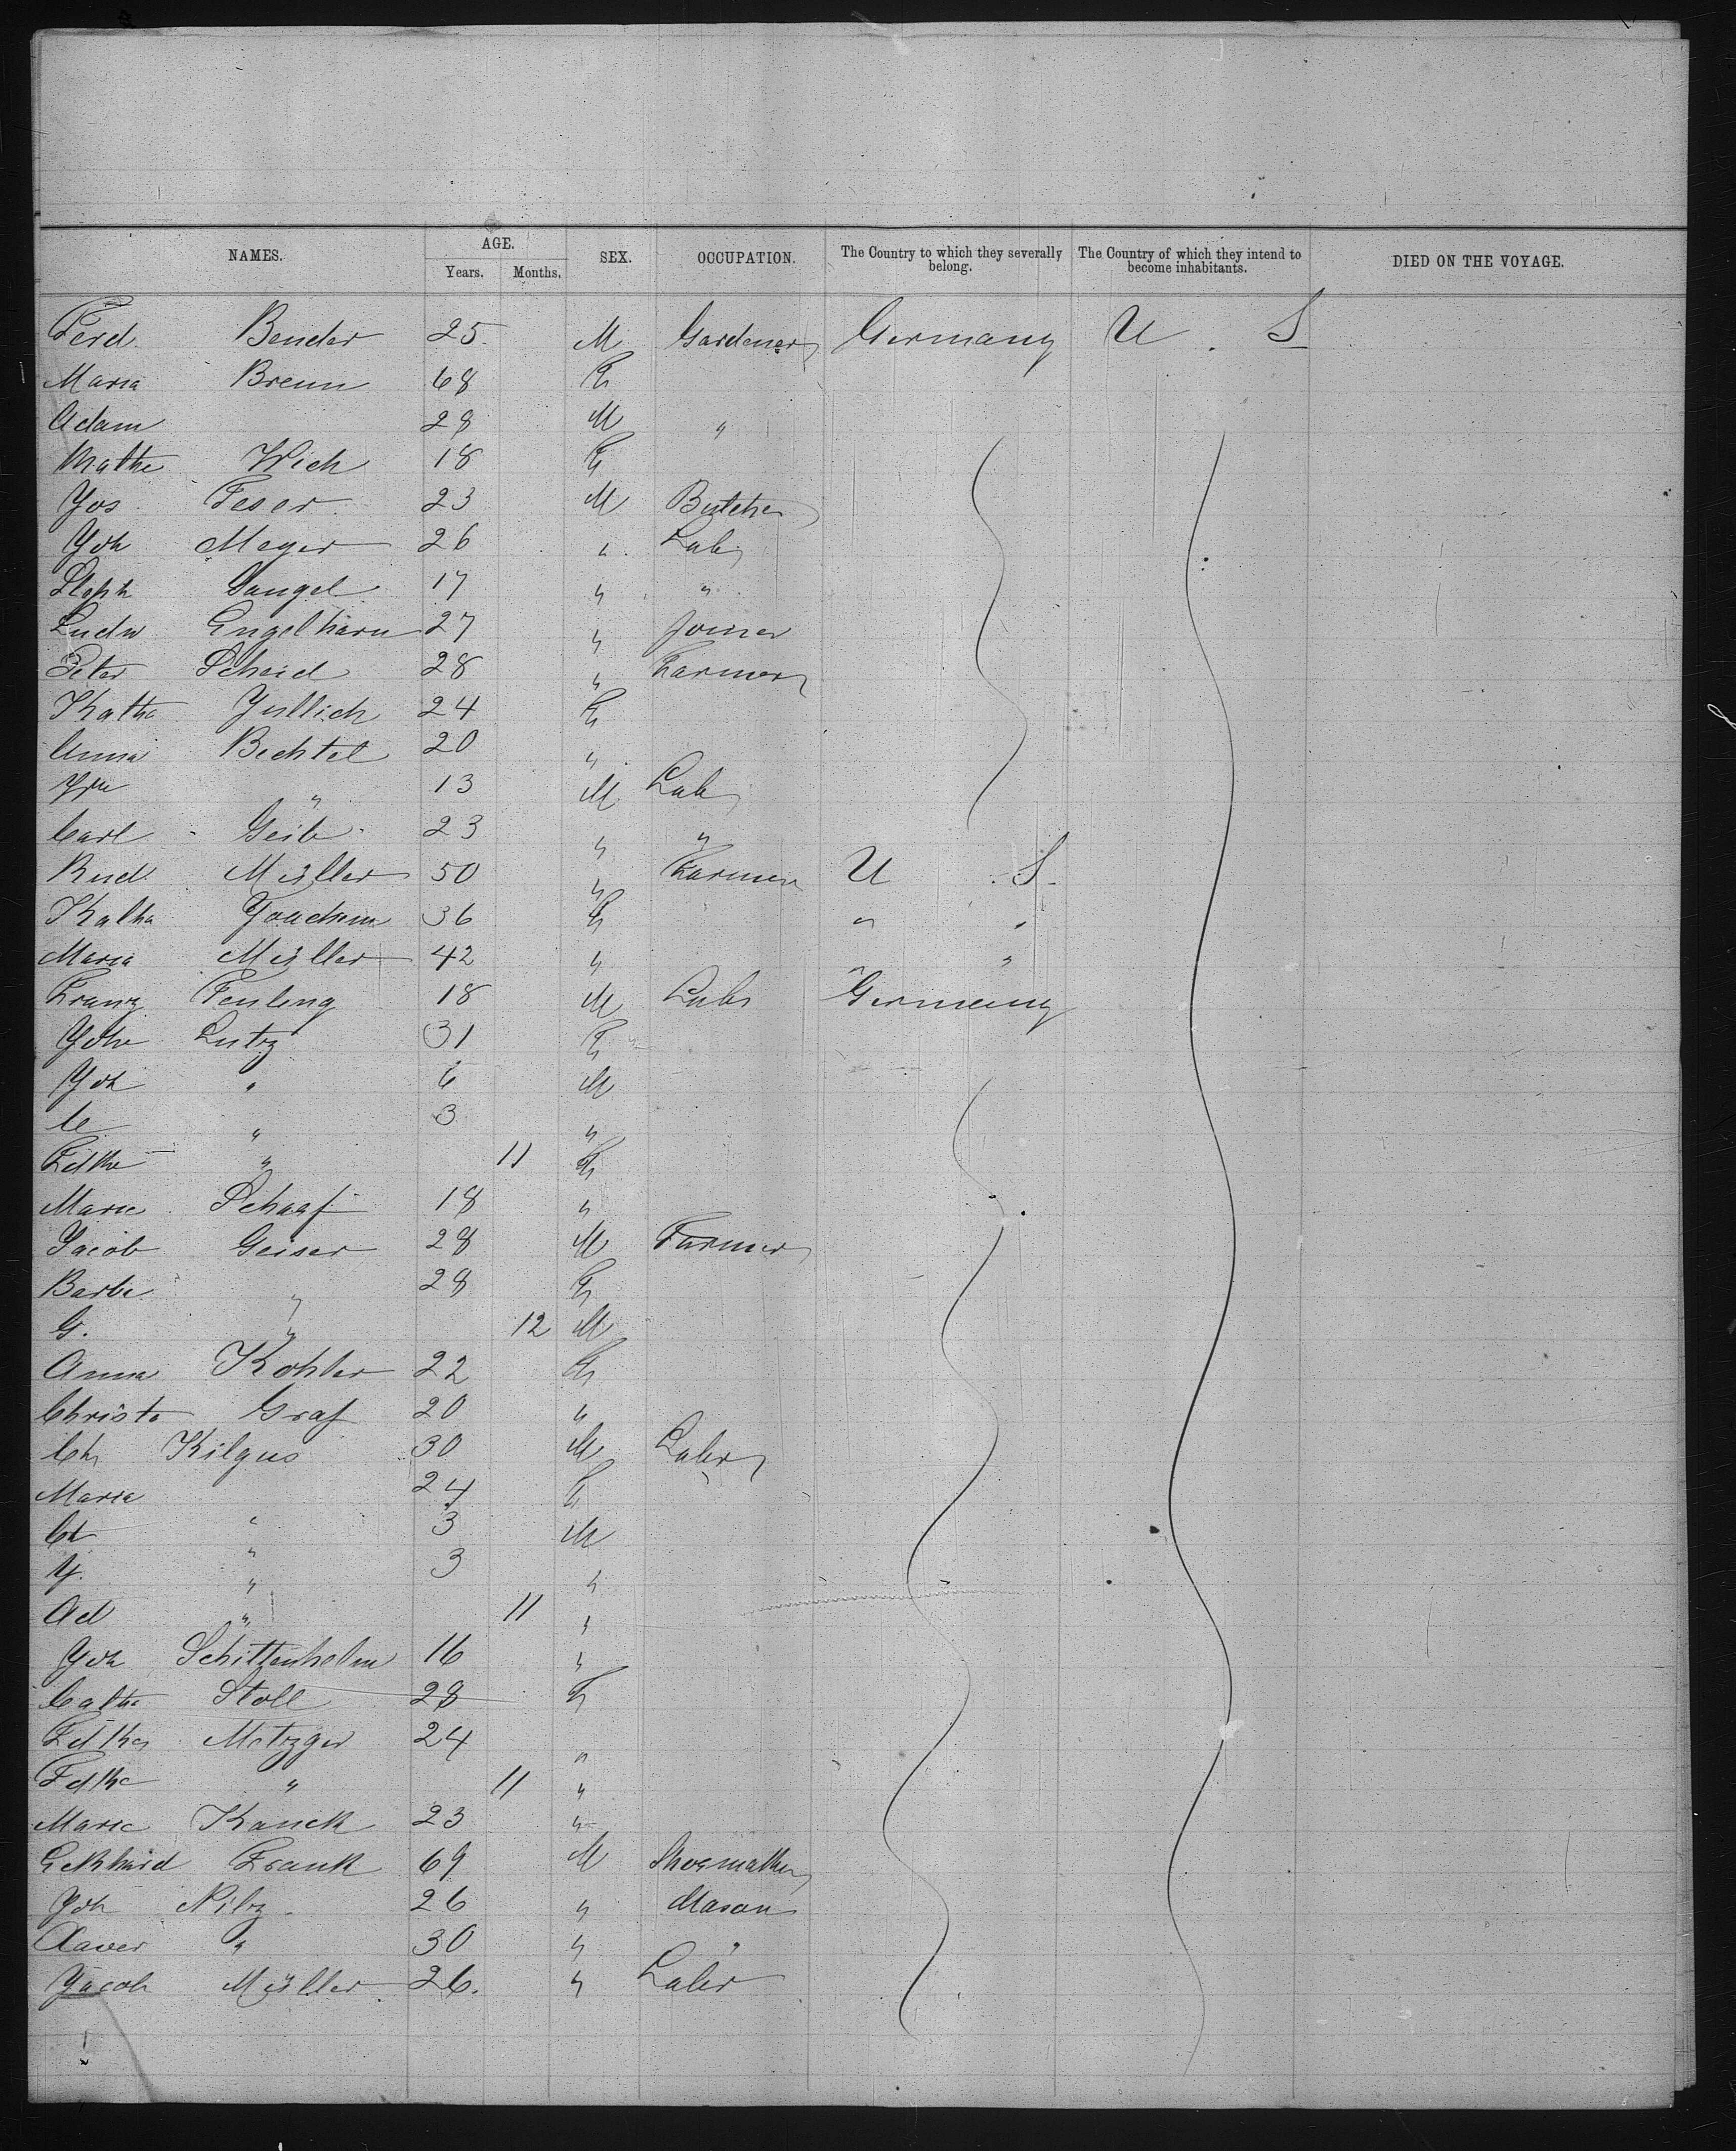 NAMES. AGE. SEX. OCCUPATION. The Country to which they severally belong. The Country of which they intend to become inhabitants. DIED ON THE VOYAGE.
Years. Months.
Ferd Bender 25 M Gardener Germany U. S
Maria Brenn 68 F
Adam 28 M "
Mathe Wich 18 F
Jos Feser 23 M Butcher
Joh Meyer 26 " Lab
Steph Gangel 17 " "
Ludw Engelharn 27 " Joiner
Peter Scheid 28 " Farmer
Katha Jullich 24 F
Anna Bechtel 20 "
" 13 M Lab
Carl Geib 23 " "
Rud Müller 50 " Farmer U S.
Katha Joachim 36 F " "
Maria Müller 42 " " "
Franz Fenling 18 M Labr Germany
Lutz 31 F
Joh " 6 M
" 3 "
" 11 F
Marie Schaaf 18 "
Jacob Geiser 28 M Farmer
Barbe " 28 F
G. " 12 M
Anna Kohler 22 F
Christe Graf 20 "
Ch Kilgus 30 M Labr
Marie " 24 F
Ch " 3 M
J. " 3 "
Ad " 11 "
Joh Schittenhelm 16 "
Cathe Stoll 28 F
Metzger 24 "
" 11 "
Marie Kanck 23 "
Eckhard Frank 69 M Shoemaker
Joh Nilz 26 " Mason
Xaver " 30 " "
Jacob Müller 26. " Labr